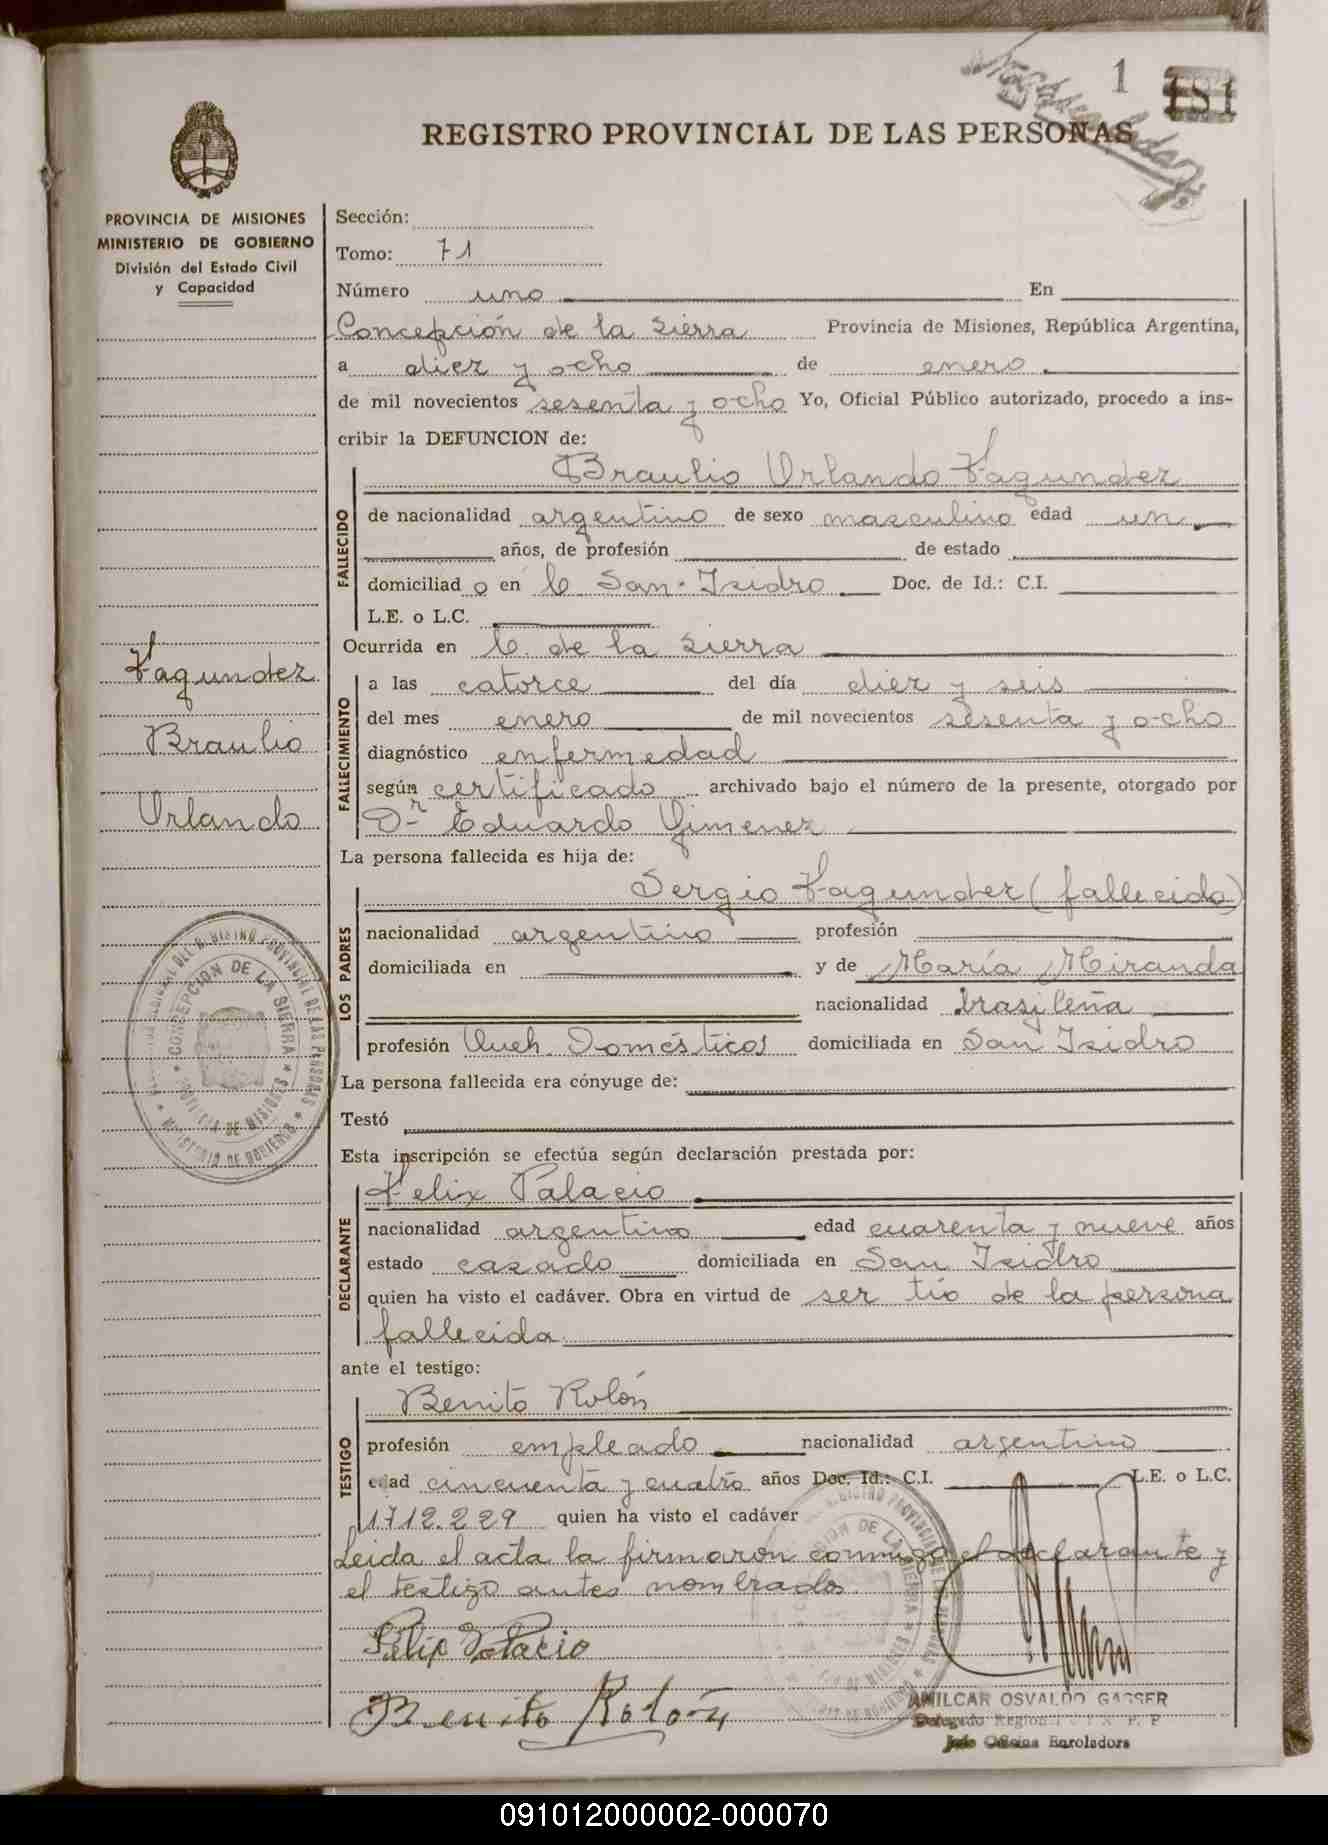 1
181
REGISTRO PROVINCIAL DE LAS PERSONAS
PROVINCIA DE MISIONES
MINISTERIO DE GOBIERNO
División del Estado Civil
y Capacidad
Sección:
Tomo: 71
Número uno En
Concepción de la Sierra Provincia de Misiones, República Argentina,
a diez y ocho de enero
de mil novecientos sesenta y ocho Yo, Oficial Público autorizado, procedo a ins-
cribir la DEFUNCION de:
FALLECIDO
Braulio Orlando Fagundez
de nacionalidad argentino de sexo masculino edad un
años, de profesión de estado
domiciliad o en C San Isidro Doc. de Id.: C.I.
L.E. o L.C.
Ocurrida en C. de la Sierra
Fagundez
Braulio
Orlando
FALLECIMIENTO
a las catorce del día diez y seis
del mes enero de mil novecientos sesenta y ocho
diagnóstico enfermedad
según certificado archivado bajo el número de la presente, otorgado por
Dr Eduardo Gimenez
La persona fallecida es hija de:
LOS PADRES
Sergio Fagundez (fallecido)
nacionalidad argentino profesión
domiciliada en y de María Miranda
nacionalidad brasileña
profesión Queh. Domésticos domiciliada en San Isidro
La persona fallecida era cónyuge de:
Testó
Esta inscripción se efectúa según declaración prestada por:
DECLARANTE
Felix Palacio
nacionalidad argentino edad cuarenta y nueve años
estado casado domiciliada en San Isidro
quien ha visto el cadáver. Obra en virtud de ser tío de la persona
fallecida
ante el testigo:
TESTIGO
Benito Rolón
profesión empleado nacionalidad argentino
edad cincuenta y cuatro años Doc. Id.: C.I. L.E. o L.C.
1712.229 quien ha visto el cadáver
Leida el acta la firmaron conmigo el declarante y
el testigo antes nombrados.
Felix Palacio
Benito Rolón
CONCEPCION DE LA SIERRA
PROVINCIA DE MISIONES
MINISTERIO DE GOBIERNO
AMILCAR OSVALDO GASSER
Delegado
Jefe Oficina Enroladora
091012000002-000070